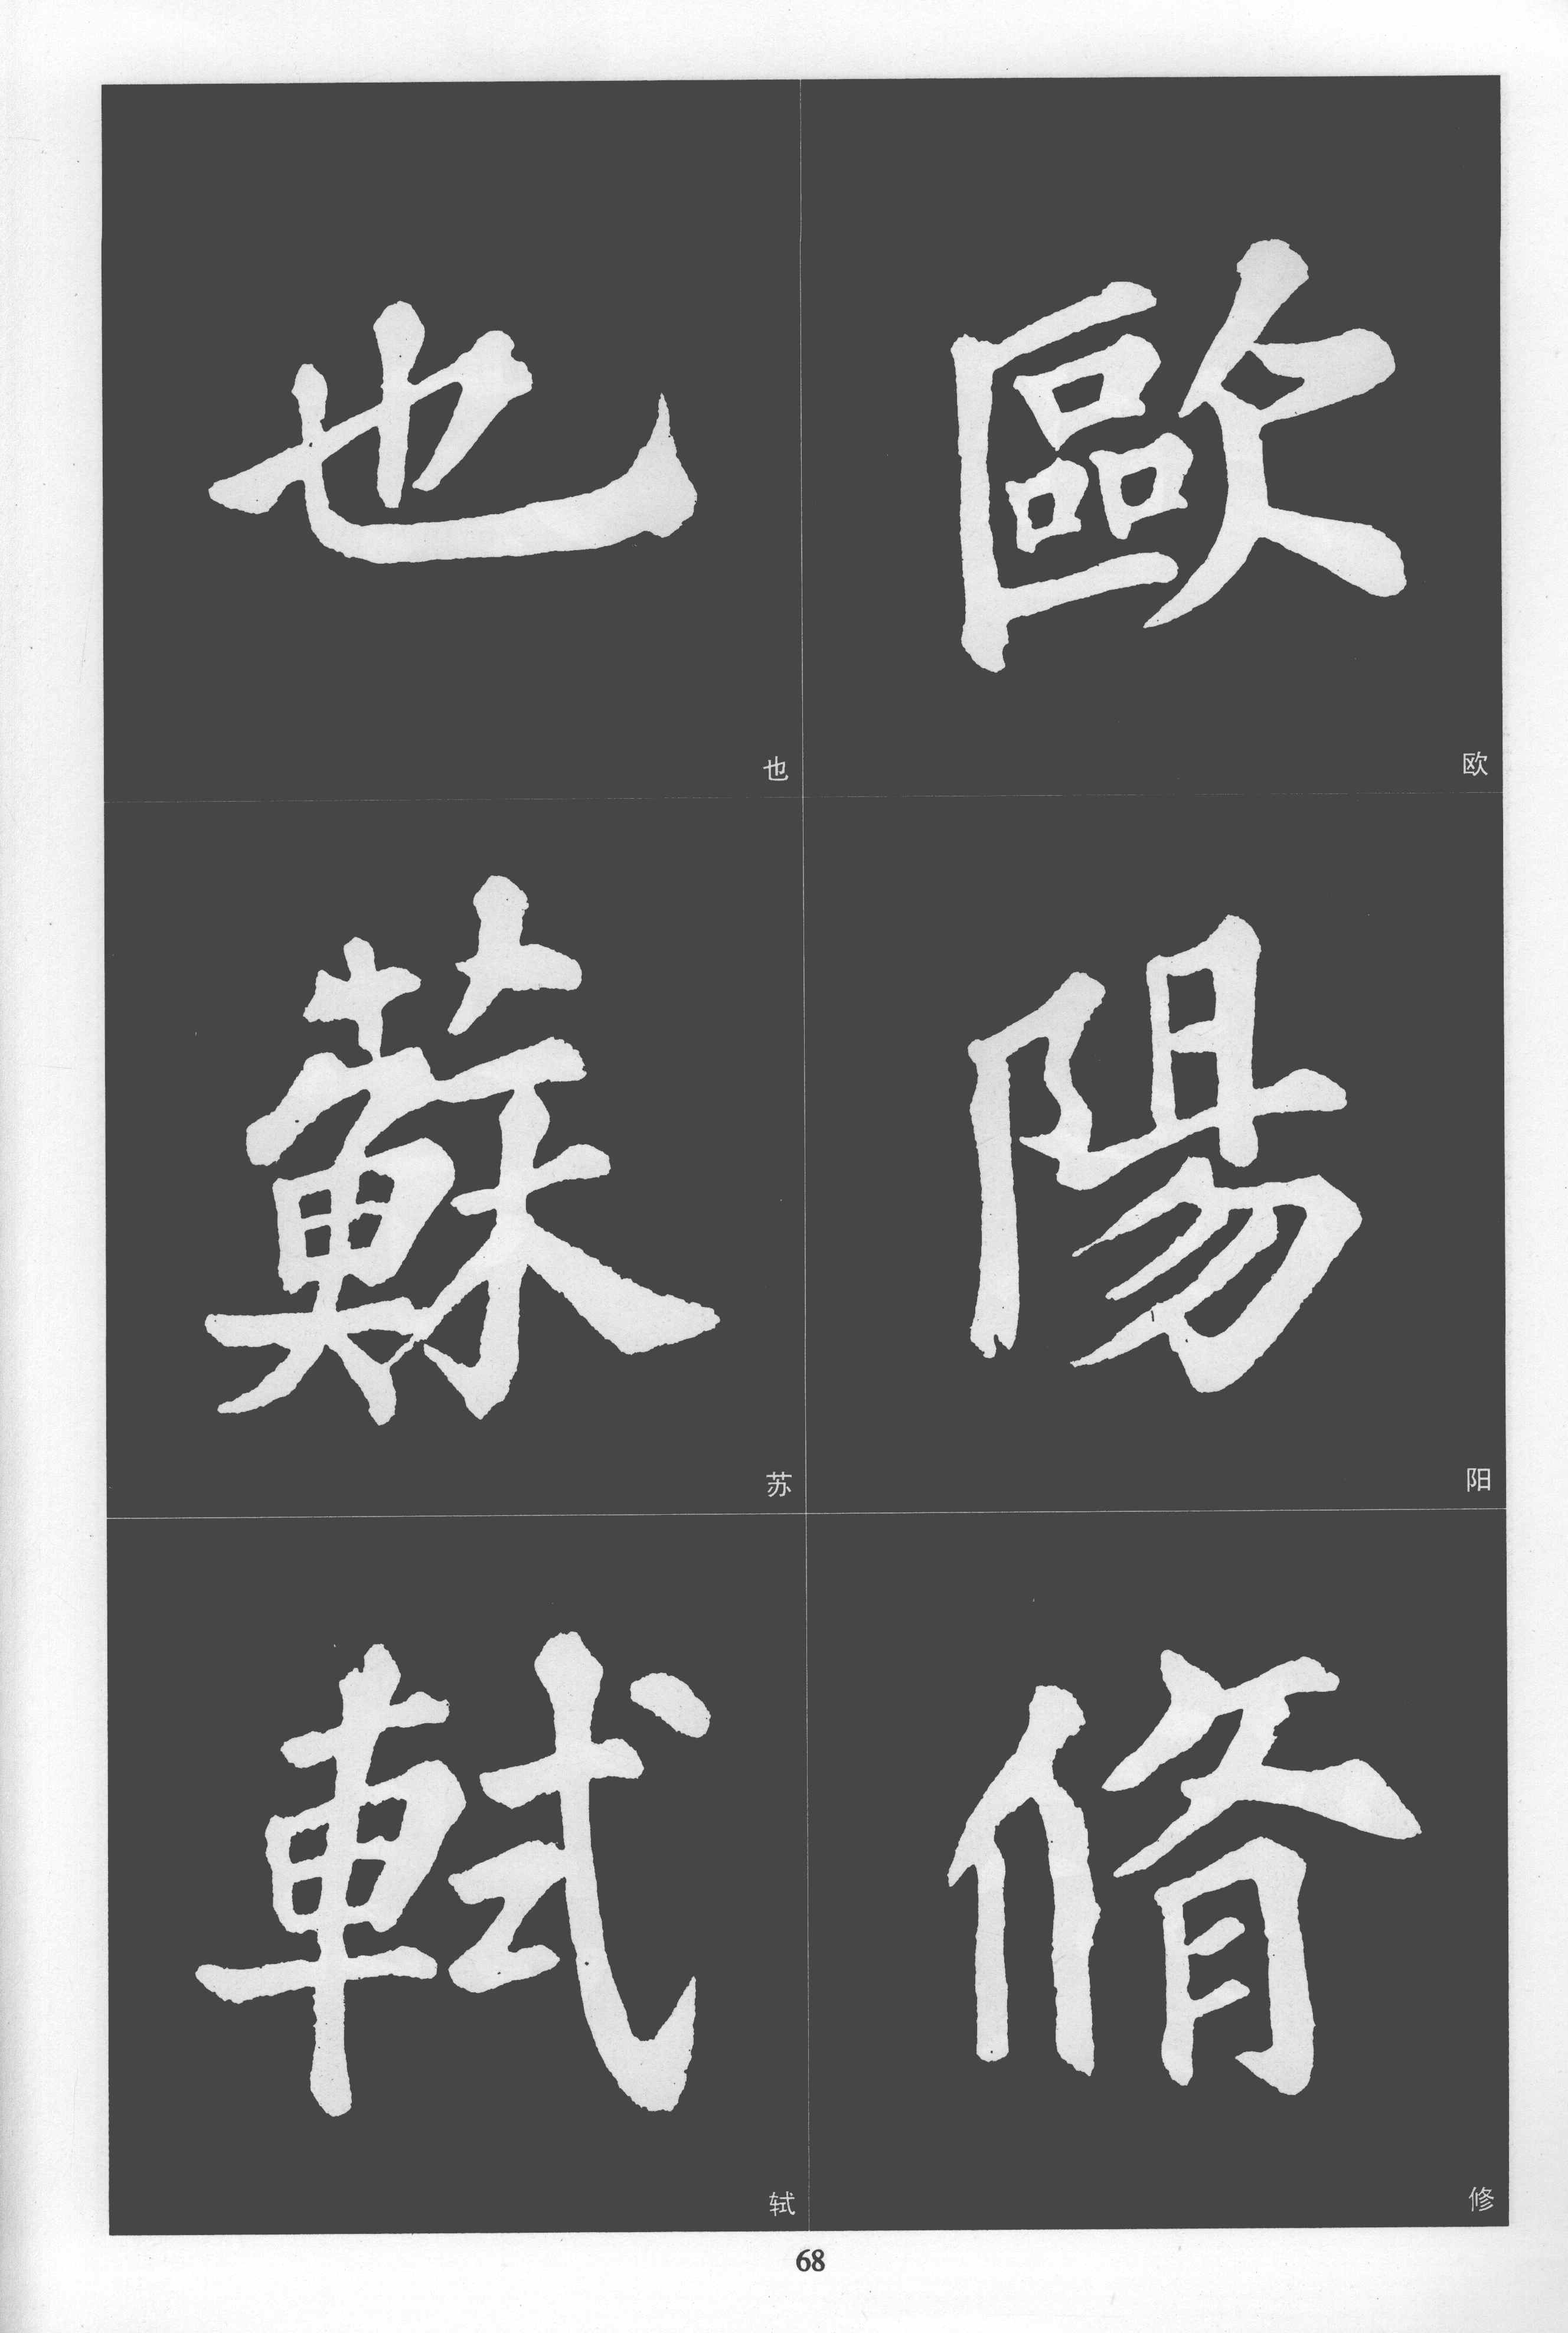 歐
欧
陽
阳
脩
修
也
也
蘇
苏
軾
轼
68